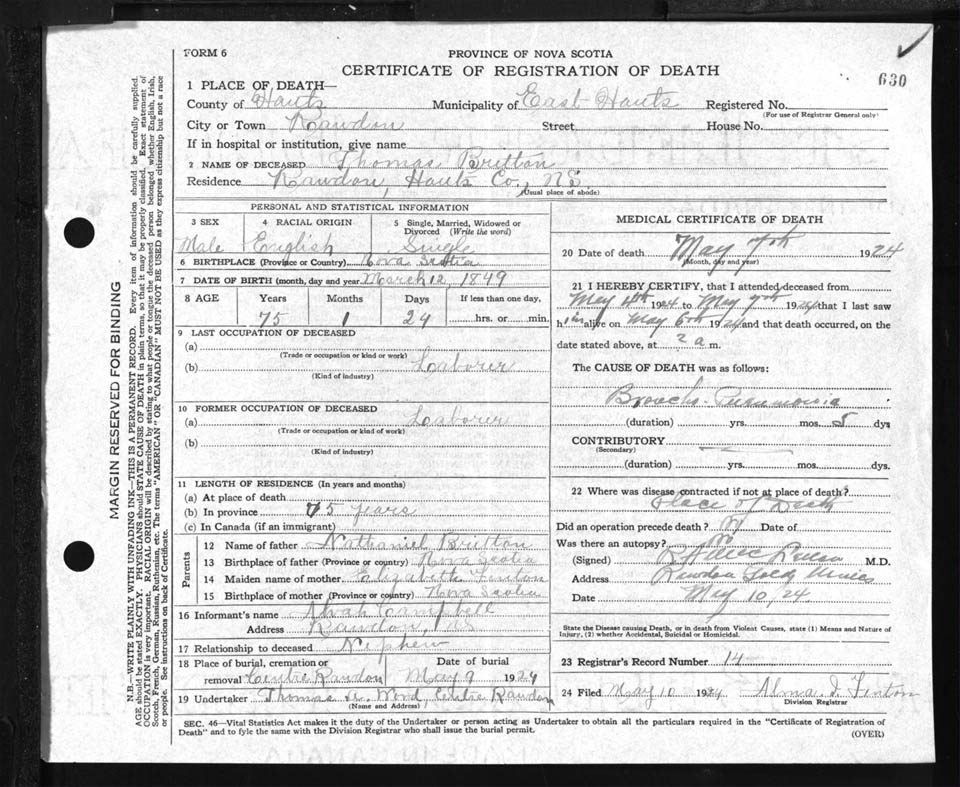 FORM 6
PROVINCE OF NOVA SCOTIA
CERTIFICATE OF REGISTRATION OF DEATH
630
1 PLACE OF DEATH—
County of Hants Municipality of East Hants Registered No.
(For use of Registrar General only)
City or Town Rawdon Street House No.
If in hospital or institution, give name
2 NAME OF DECEASED Thomas Britton
Residence Rawdon, Hants Co., N.S.
(Usual place of abode)
PERSONAL AND STATISTICAL INFORMATION
3 SEX 4 RACIAL ORIGIN 5 Single, Married, Widowed or Divorced (Write the word)
Male English Single
6 BIRTHPLACE (Province or Country) Nova Scotia
7 DATE OF BIRTH (month, day and year) March 12, 1849
8 AGE Years Months Days If less than one day,
75 1 24 hrs. or min.
9 LAST OCCUPATION OF DECEASED
(a)
(Trade or occupation or kind or work)
(b) Laborer
(Kind of industry)
10 FORMER OCCUPATION OF DECEASED
(a) Laborer
(Trade or occupation or kind of work)
(b)
(Kind of industry)
11 LENGTH OF RESIDENCE (In years and months)
(a) At place of death
(b) In province 75 years
(c) In Canada (if an immigrant)
Parents
12 Name of father Nathaniel Britton
13 Birthplace of father (Province or country) Nova Scotia
14 Maiden name of mother Elizabeth Fenton
15 Birthplace of mother (Province or country) Nova Scotia
16 Informant's name Alvah Campbell
Address Rawdon, NS
17 Relationship to deceased Nephew
18 Place of burial, cremation or removal Centre Rawdon Date of burial May 9 1924
19 Undertaker Thomas W. Wood Centre Rawdon
(Name and Address)
MEDICAL CERTIFICATE OF DEATH
20 Date of death May 7th 1924
(Month, day and year)
21 I HEREBY CERTIFY, that I attended deceased from
May 4th 1924 to May 7th 1924 that I last saw
him alive on May 6th 1924 and that death occurred, on the
date stated above, at 2 a m.
The CAUSE OF DEATH was as follows:
Broncho-Pneumonia
(duration) yrs. mos. 5 dys
CONTRIBUTORY
(Secondary)
(duration) yrs. mos. dys.
22 Where was disease contracted if not at place of death?
Place of Death
Did an operation precede death? No Date of
Was there an autopsy? No
(Signed) M.D.
Address Rawdon Gold Mines
Date May 10, 24
State the Disease causing Death, or in death from Violent Causes, state (1) Means and Nature of
Injury, (2) whether Accidental, Suicidal or Homicidal.
23 Registrar's Record Number 14
24 Filed May 10 1924 Alma I. Fenton
Division Registrar
SEC. 46—Vital Statistics Act makes it the duty of the Undertaker or person acting as Undertaker to obtain all the particulars required in the "Certificate of Registration of
Death" and to fyle the same with the Division Registrar who shall issue the burial permit.
(OVER)
MARGIN RESERVED FOR BINDING
N.B.—WRITE PLAINLY WITH UNFADING INK—THIS IS A PERMANENT RECORD. Every item of information should be carefully supplied.
AGE should be stated EXACTLY. PHYSICIANS should STATE CAUSE OF DEATH in plain terms, so that it may be properly classified. Exact statement of
OCCUPATION is very important. RACIAL ORIGIN will be described by stating to what people or tongue the deceased person belonged whether English, Irish,
Scotch, French, German, Russian, Ruthenian, etc. The terms "AMERICAN" OR "CANADIAN" MUST NOT BE USED as they express citizenship but not a race
or people. See instructions on back of Certificate.